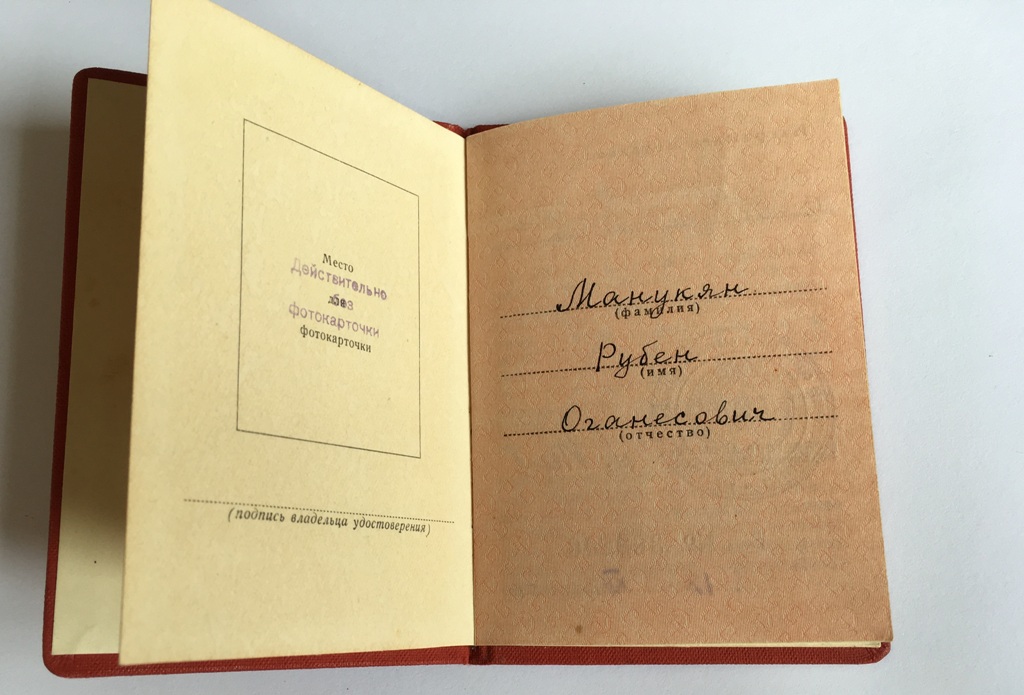 Место
Действительно
для
без
фотокарточки
фотокарточки
(подпись владельца удостоверения)
Манукян
(фамилия)
Рубен
(имя)
Оганесович
(отчество)